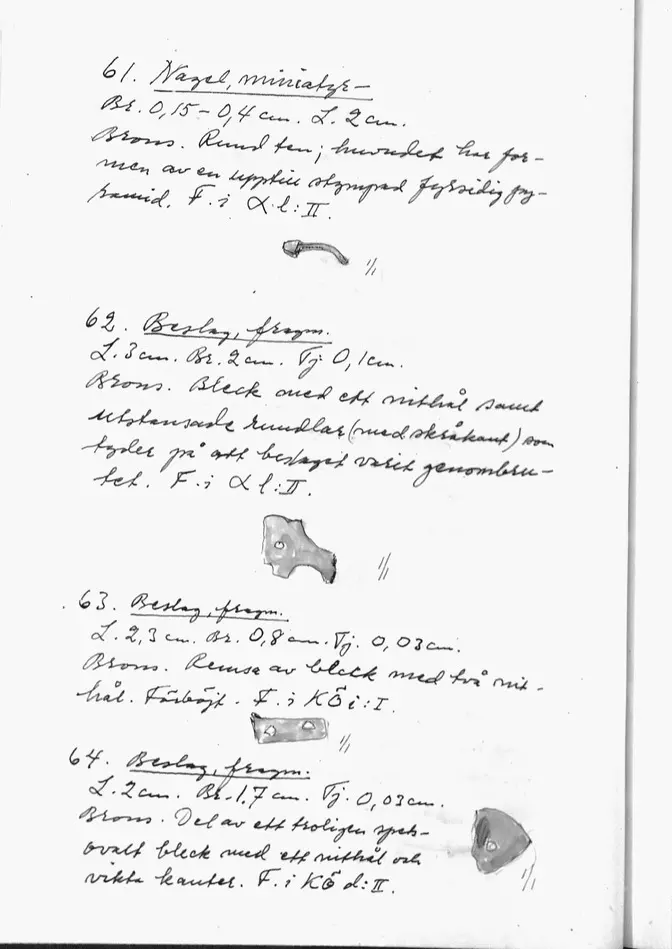 61. Nagel, miniatyr-
Br. 0,15-0,4 cm. L. 2 cm.
Brons. Rund ten; huvudet har for-
men av en upptill stympad fyrsidig py-
ramid. F. i αl:II.
1/1
62. Beslag, fragm.
L. 3 cm. Br. 2 cm. Tj 0,1 cm.
Brons. Bleck med ett nithål samt
utstansade rundlar (med skråkant) som
tyder på att beslaget varit genombru-
tet. F. i αl:II.
1/1
63. Beslag, fragm.
L. 2,3 cm. Br. 0,8 cm. Tj. 0,03 cm.
Brons. Remsa av bleck med två nit-
hål. Förböjt. F. i KÖi:I.
1/1
64. Beslag, fragm.
L. 2 cm. Br. 1,7 cm. Tj. 0,03 cm.
Brons. Del av ett troligen spets-
ovalt bleck med ett nithål och
vikta kanter. F. i KÖ d:II.
1/1